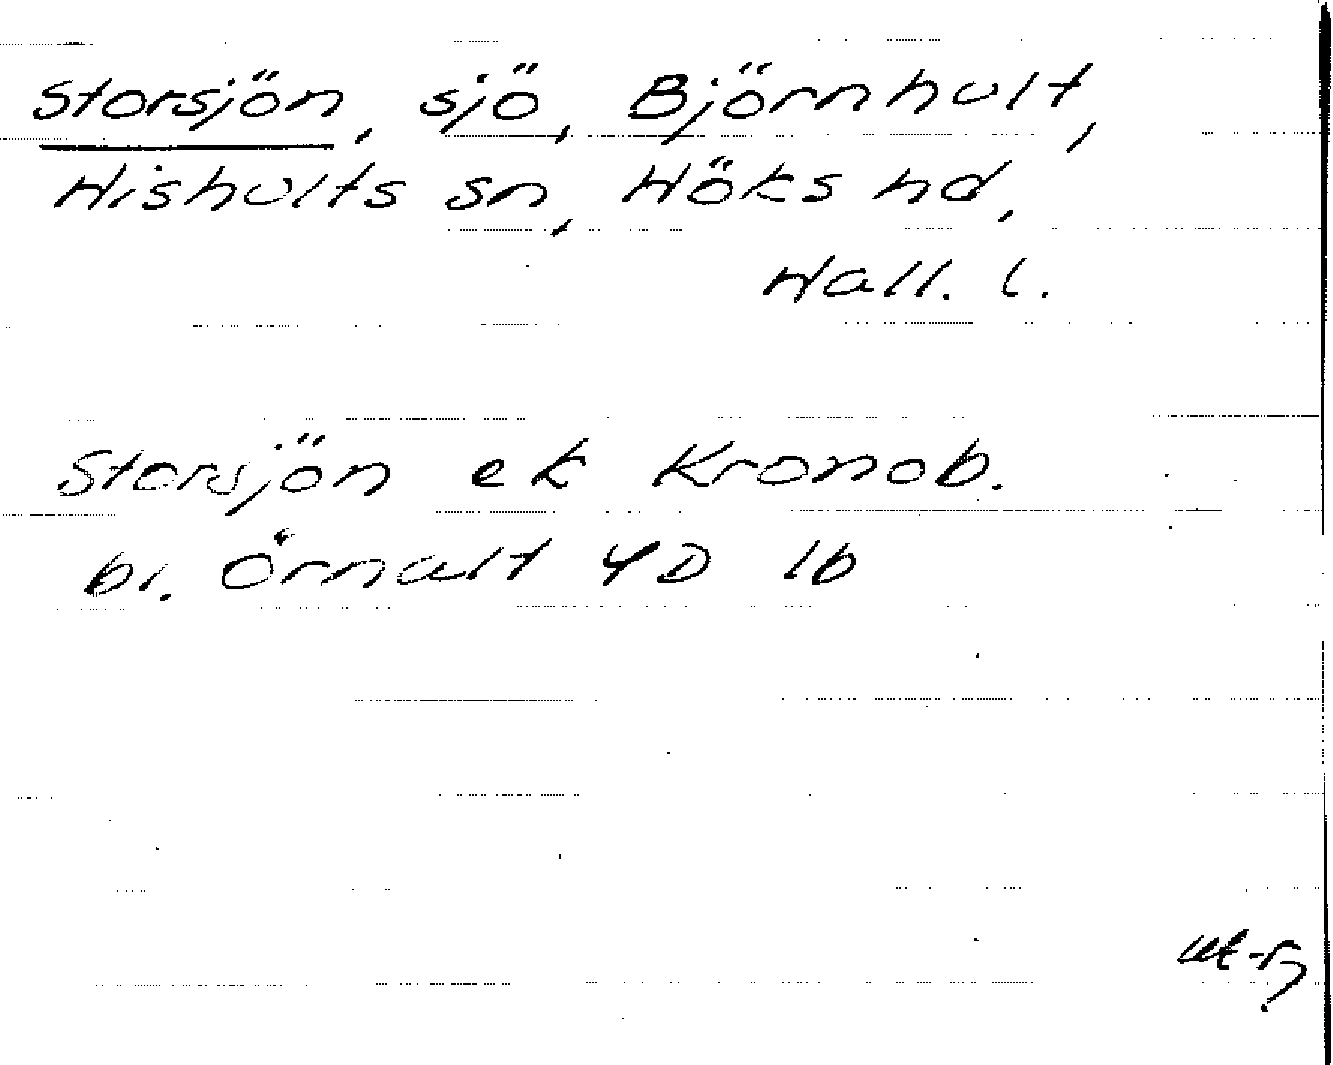 Storsjön, sjö, Björnhult,
Hishults sn, Höks hd,
Hall. l.
Storsjön ek Kronob.
bl. Örnalt 4D 1b